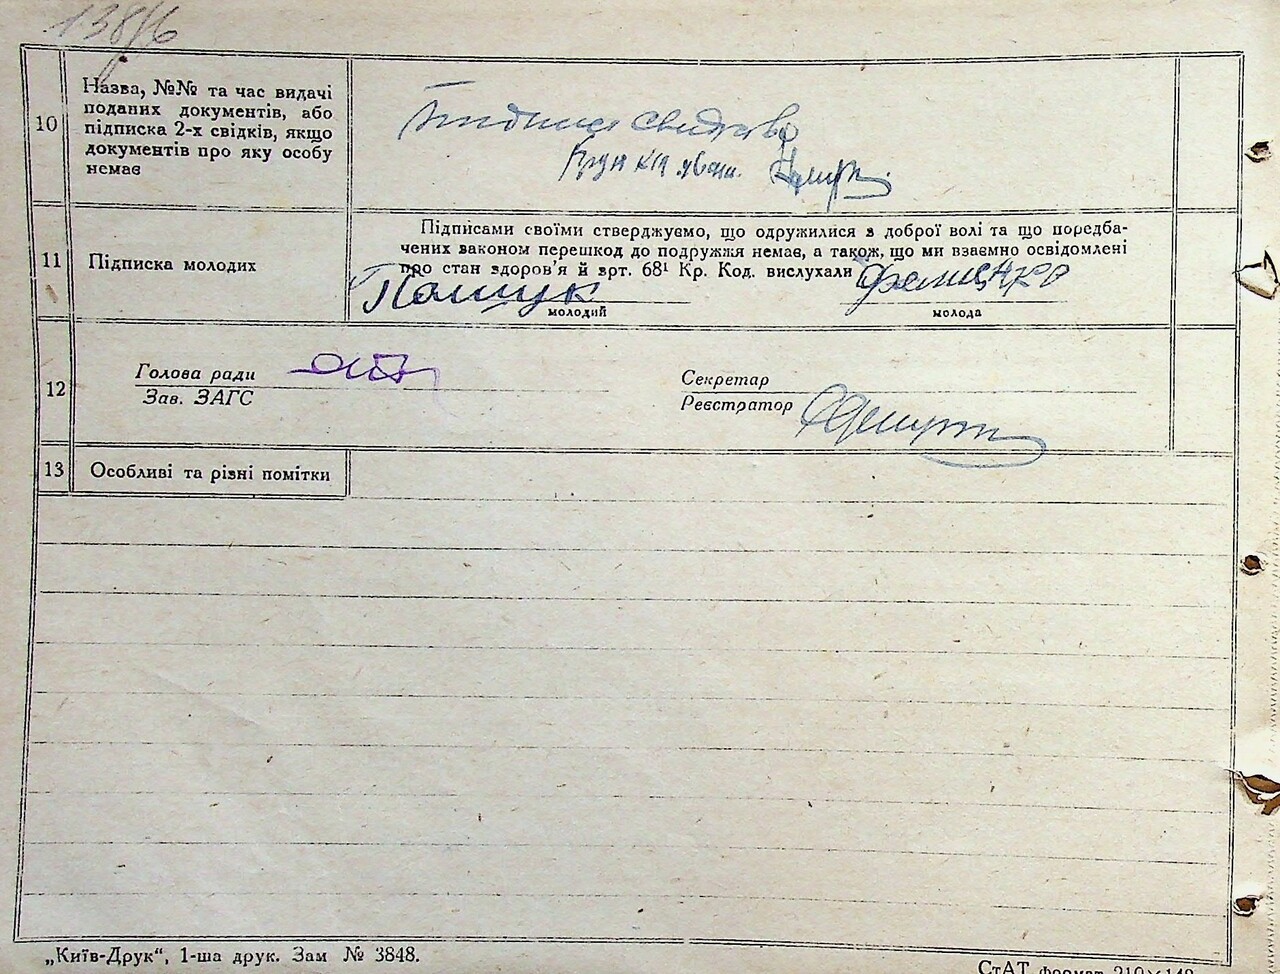 138/6
10
Назва, №№ та час видачі
поданих документів, або
підписка 2-х свідків, якщо
документів про яку особу
немає
11
Підписка молодих
Підписами своїми стверджуємо, що одружилися з доброї волі та що передба-
чених законом перешкод до подружжя немає, а також, що ми взаємно освідомлені
про стан здоров'я й арт. 68¹ Кр. Код. вислухали
молодий
молода
12
Голова ради
Зав. ЗАГС
Секретар
Реєстратор
13
Особливі та різні помітки
„Київ-Друк“, 1-ша друк. Зам № 3848.
СтАТ формат 210×148